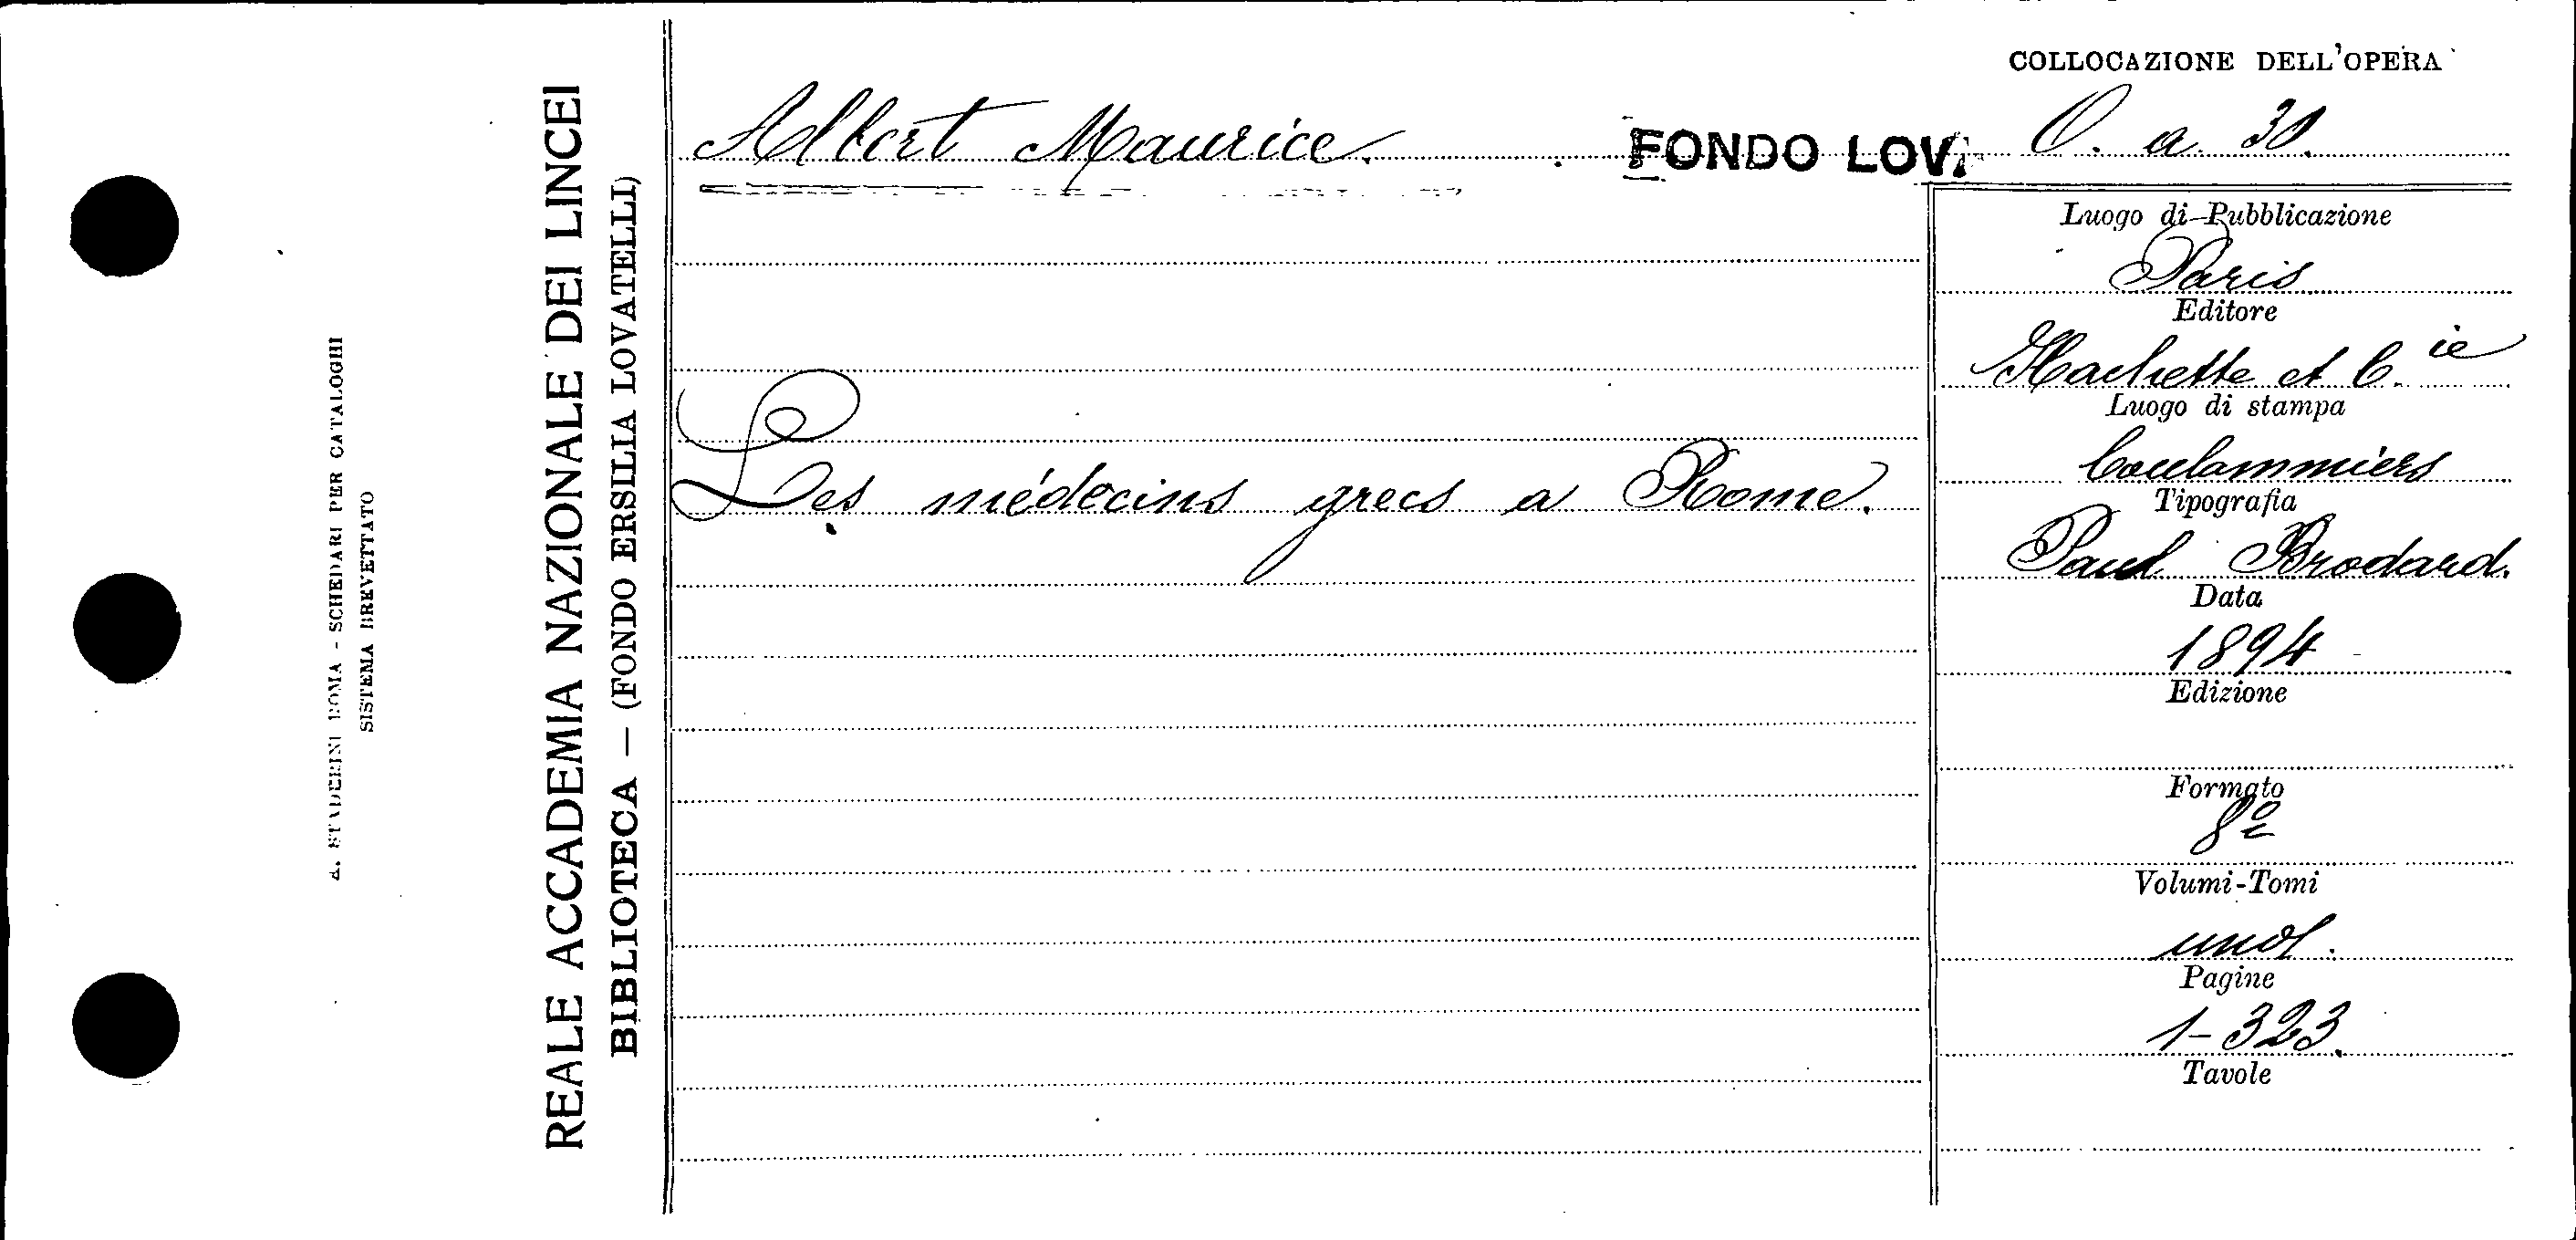 A. STADERINI ROMA - SCHEDARI PER CATALOGHI
SISTEMA BREVETTATO
REALE ACCADEMIA NAZIONALE DEI LINCEI
BIBLIOTECA — (FONDO ERSILIA LOVATELLI)
COLLOCAZIONE DELL'OPERA
Albert Maurice. FONDO LOV. O. a. 30.
Luogo di Pubblicazione
Paris
Editore
Hachette et C.ie
Luogo di stampa
Coulommiers
Les médecins grecs a Rome.
Tipografia
Paul Brodard.
Data
1894
Edizione
Formato
8º
Volumi-Tomi
uno.
Pagine
1-323.
Tavole